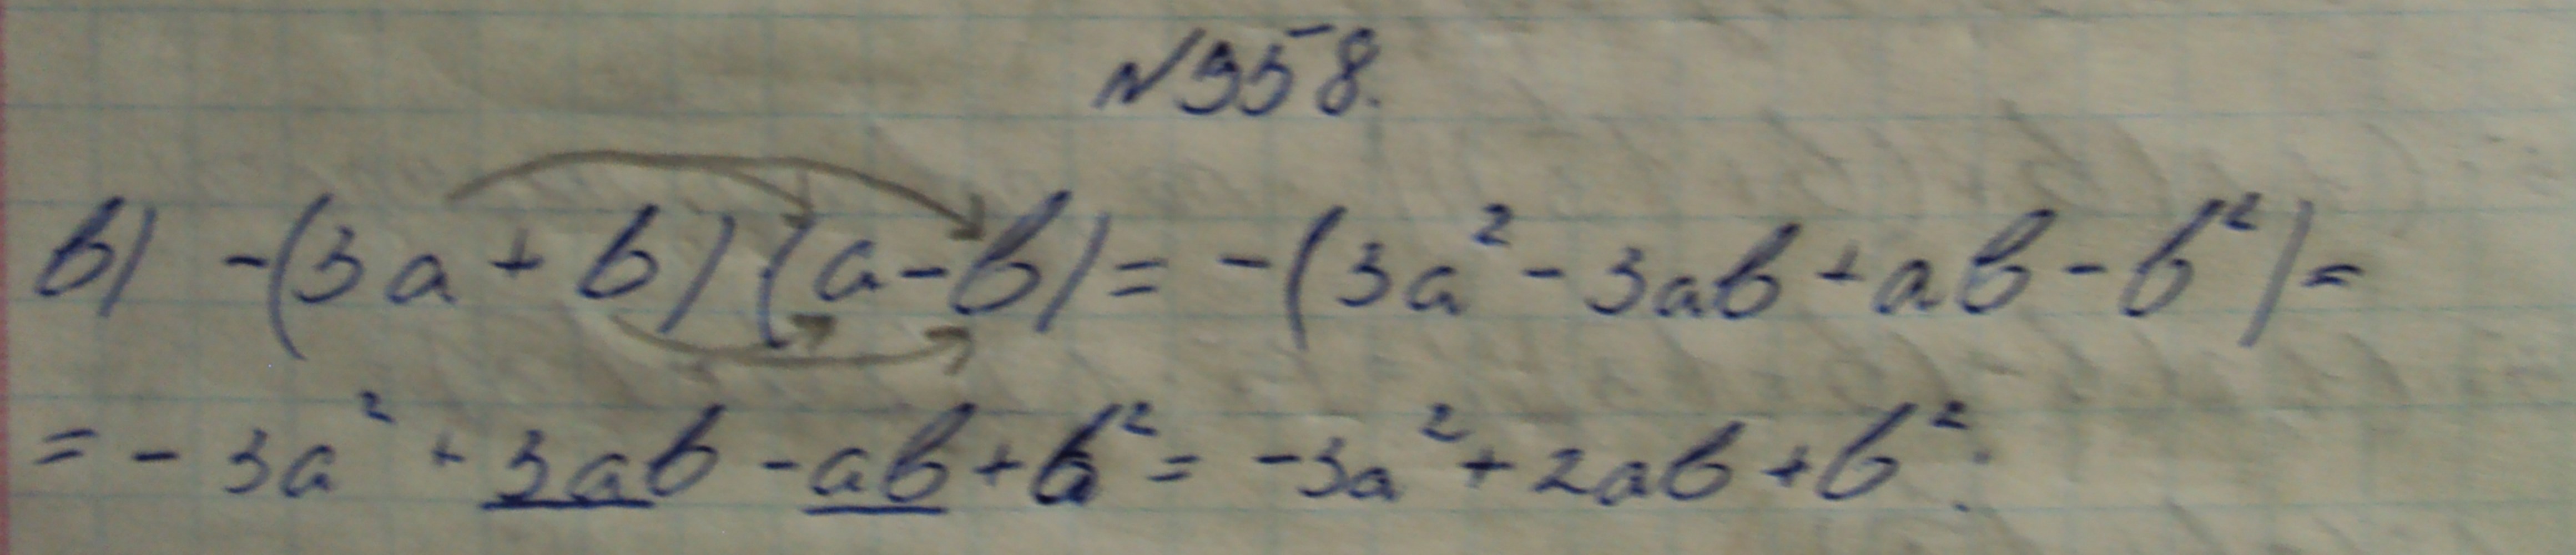 №958.
в) -(3a + b) · (a - b) = -(3a² - 3ab + ab - b²) =
= - 3a² + 3ab - ab + b² = -3a² + 2ab + b²;